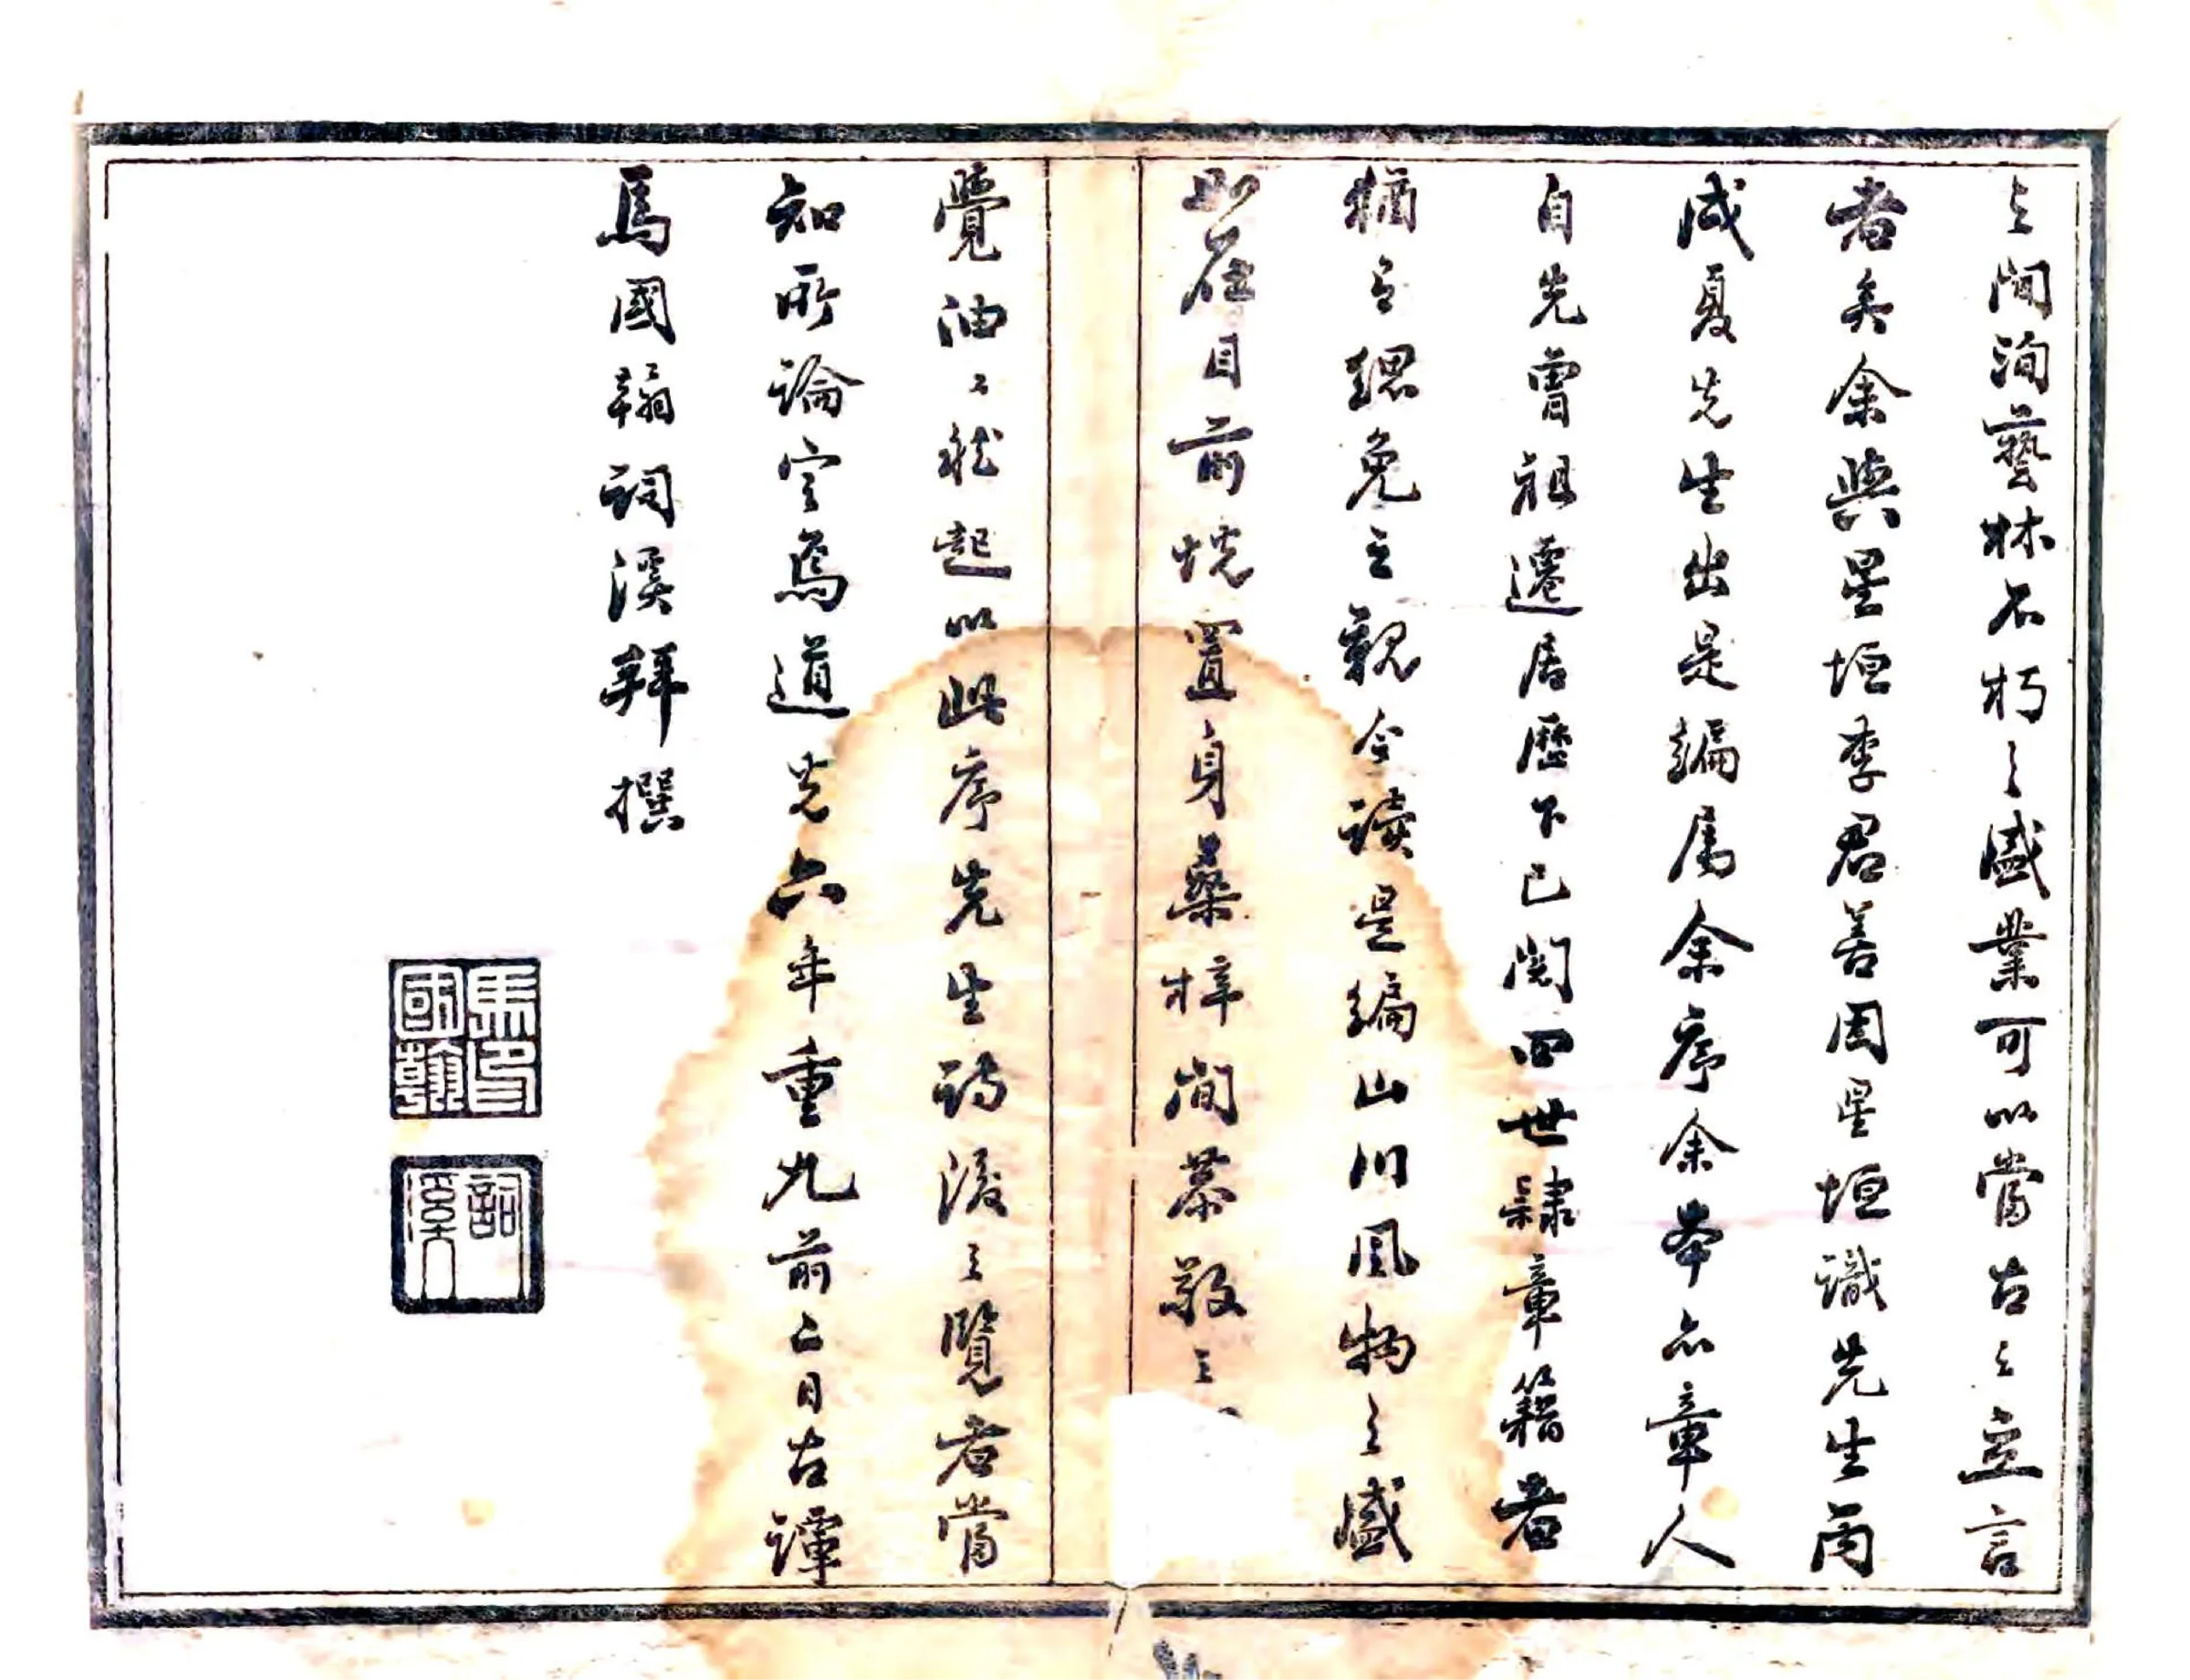 之間洵藝林不朽之盛業可以當古之立言
者矣余與星垣李君善因星垣識先生丙
戌夏先生出是編屬余序余本亦章人
自先曾祖遷居歷下已閱四世隸章籍者
猶有緦免之親今讀是編山川風物之盛
如在目前恍置身桑梓間恭敬之
覺油〻然起以此序先生詩後之覽者當
知所論定焉道光六年重九前日古譚
馬國翰詞溪拜撰
馬印國翰
詞溪